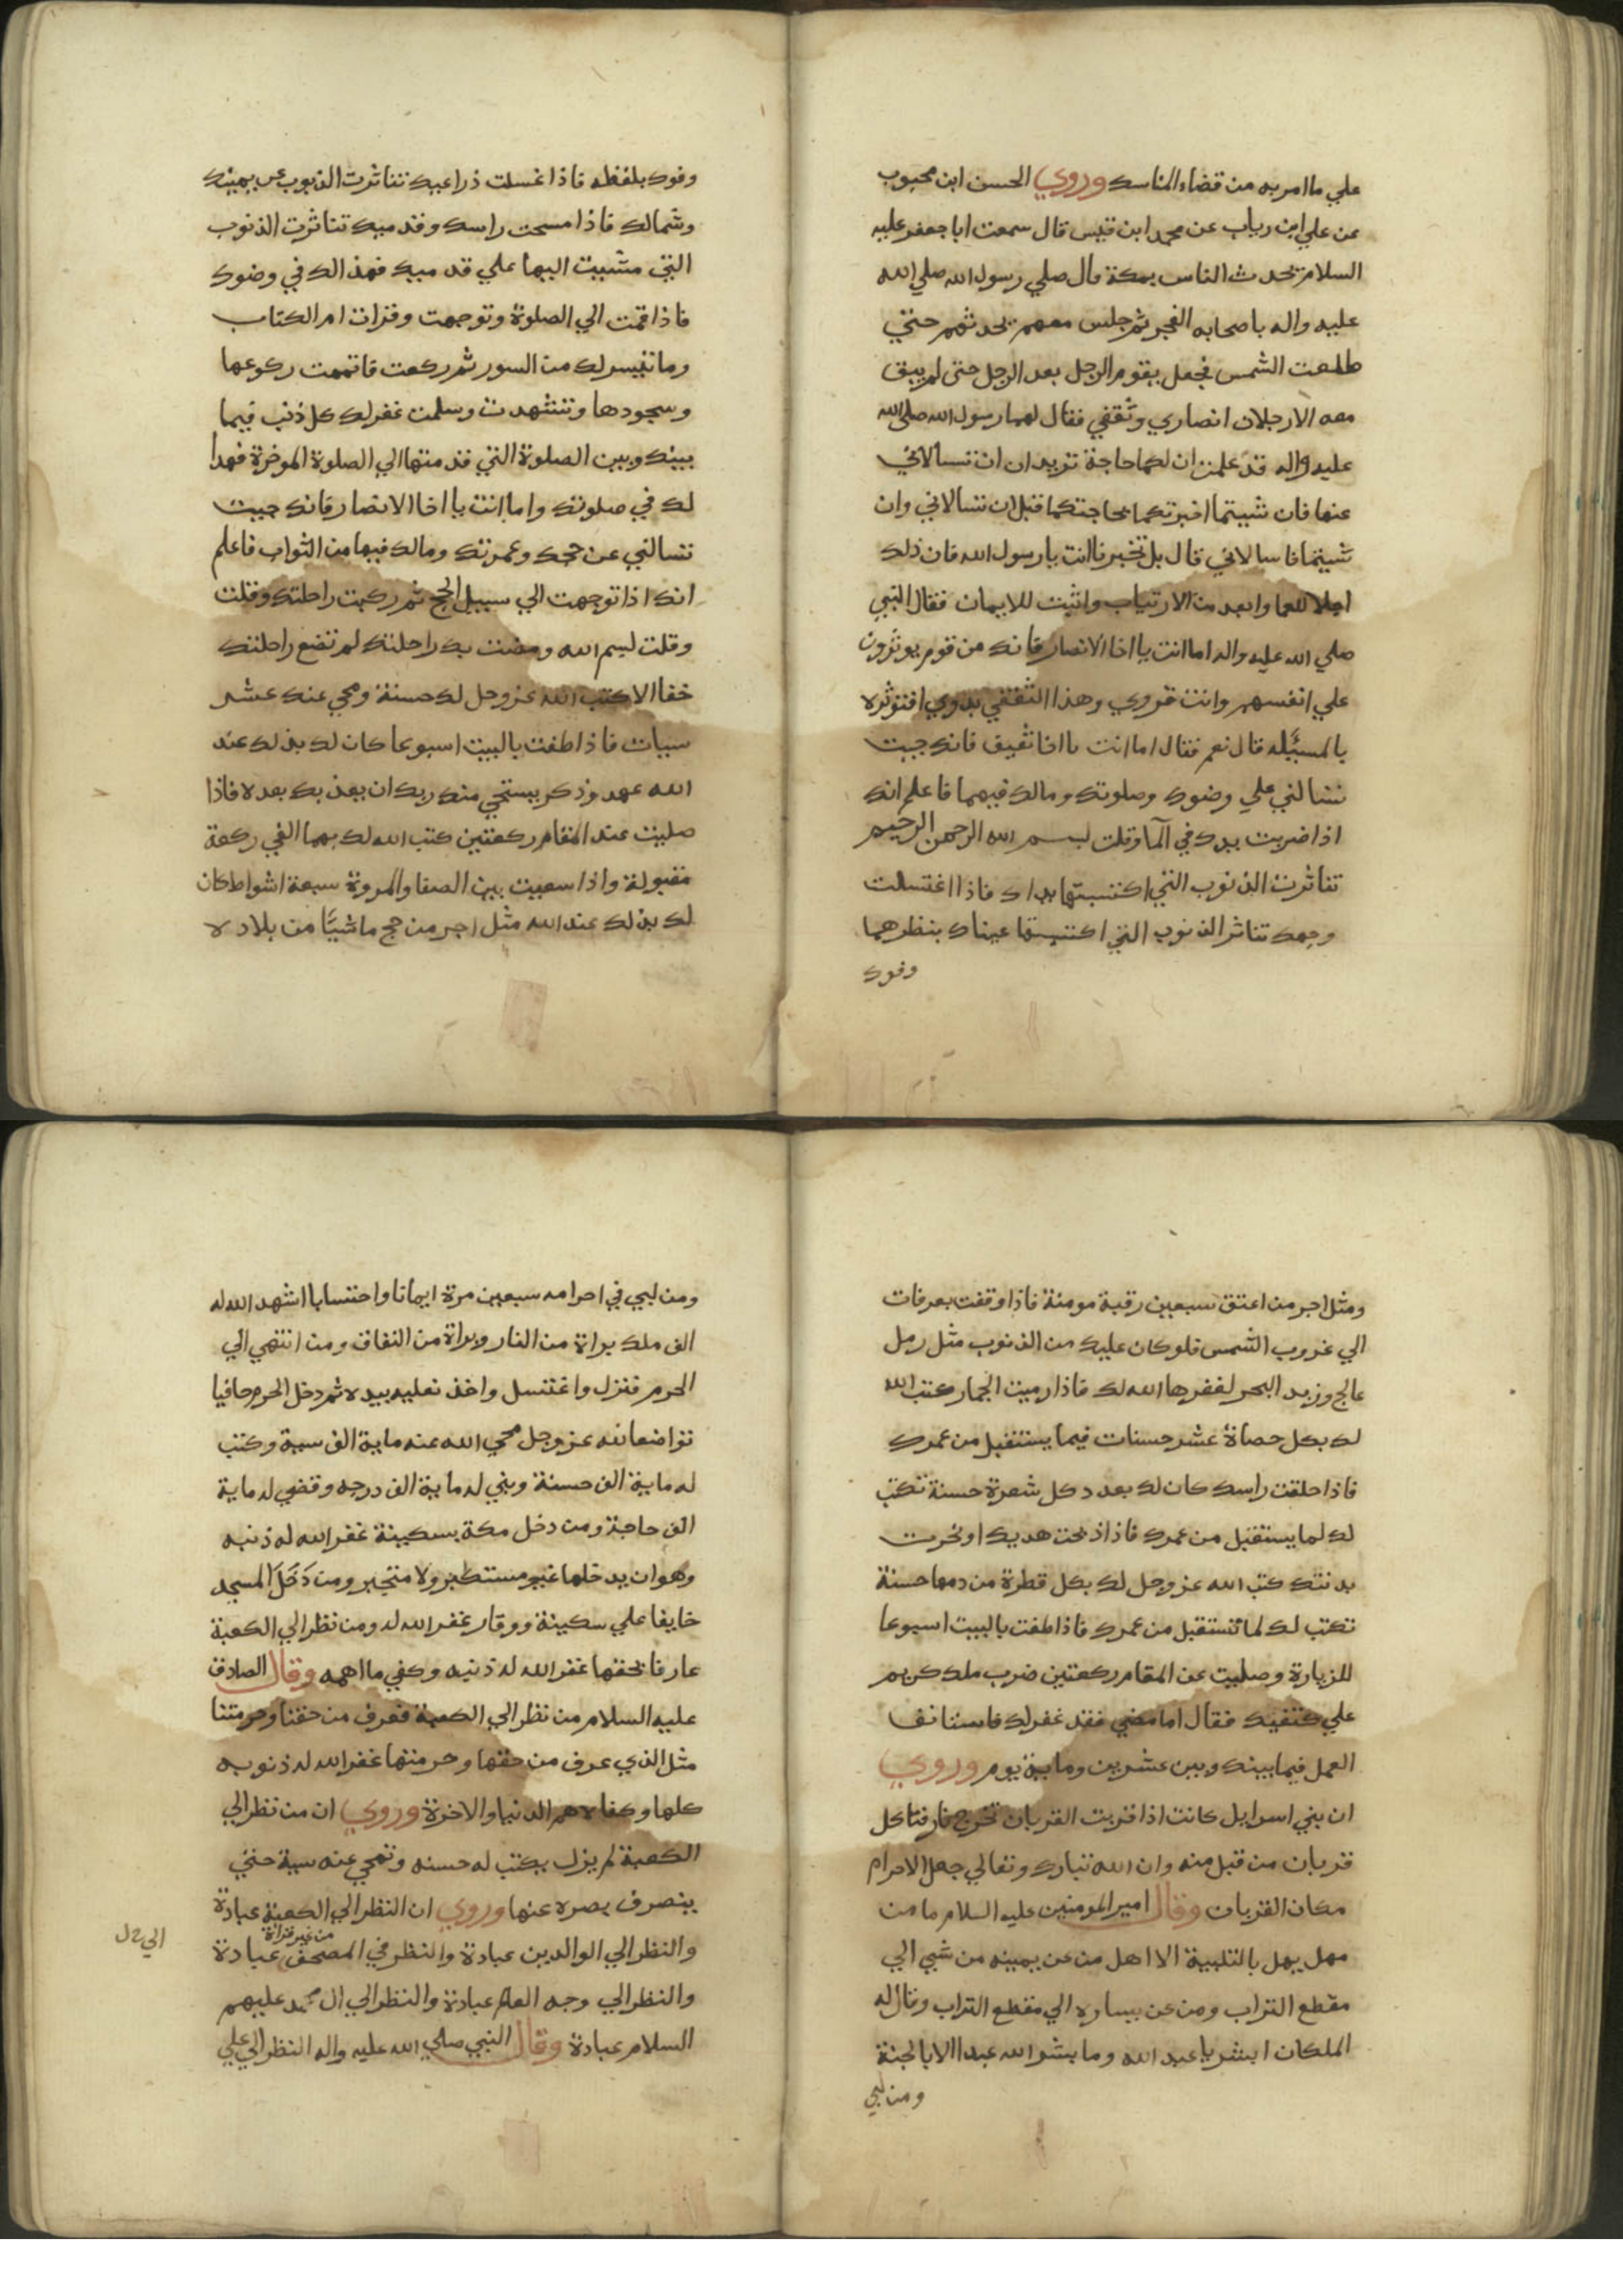 علي ما امر به من قضاء المناسك وروي الحسن ابن محبوب
عن علي ابن رياب عن محمد ابن قيس قال سمعت ابا جعفر عليه
السلام يحدث الناس بمكة قال صلي رسول الله صلي الله
عليه واله باصحابه الفجر ثم جلس معهم يحدثهم حتي
طلعت الشمس فجعل يقوم الرجل بعد الرجل حتى لم يبق
معه الا رجلان انصاري وثقفي فقال لهما رسول الله صلى الله
عليه واله قد علمت ان لكما حاجة تريدان ان تسالاني
عنها فان شيتما اخبرتكما بحاجتكما قبل ان تسالاني وان
شيتما فاسالاني قال بل تخبرنا انت يا رسول الله فان ذلك
اجلا للعما وابعد من الارتياب واثبت للايمان فقال النبي
صلي الله عليه واله اما انت يا اخا الانصار فانك من قوم يوثرون
علي انفسهم وانت قروي وهذا الثقفي بدوي افتوثره
بالمسيله قال نعم فقال اما انت يا اخا ثقيف فانك جيت
تسالني علي وضوك وصلوتك ومالك فيهما فاعلم انك
اذا ضربت يدك في الما وقلت بسم الله الرحمن الرحيم
تناثرت الذنوب التي اكتسبتها يداك فاذا اغتسلت
وجهك تناثر الذنوب التي اكتسبتها عيناك بنظرهما
وفوك
وفوك بلفظه فاذا غسلت ذراعيك تناثرت الذنوب عن يمينك
وشمالك فاذا مسحت راسك وقدميك تناثرت الذنوب
التي مشيت اليها علي قدميك فهذا لك في وضوك
فاذا قمت الي الصلوة وتوجهت وقرات ام الكتاب
وما تيسر لك من السور ثم ركعت فاتممت ركوعها
وسجودها وتشهدت وسلمت غفر لك كل ذنب فيما
بينك وبين الصلوة التي قدمتها الي الصلوة الموخرة فهذا
لك في صلوتك واما انت يا اخا الانصار فانك جيت
تسالني عن حجك وعمرتك ومالك فيها من الثواب فاعلم
انك اذا توجهت الي سبيل الحج ثم ركبت راحلتك وقلت
وقلت بسم الله ومضت بك راحلتك لم تضع راحلتك
خفا الا كتب الله عز وجل لك حسنة ومحي عنك عشر
سيات فاذا طفت بالبيت اسبوعا كان لك بذلك عند
الله عهد وذكر يستحي منك ربك ان يعذبك بعده فاذا
صليت عند المقام ركعتين كتب الله لك بهما الفي ركعة
مقبولة واذا سعيت بين الصفا والمروة سبعة اشواط كان
لك بذلك عند الله مثل اجر من حج ماشيًا من بلاده
ومثل اجر من اعتق سبعين رقبة مومنة فاذا وقفت بعرفات
الي غروب الشمس فلو كان عليك من الذنوب مثل رمل
عالج وزبد البحر لغفرها الله لك فاذا رميت الجمار كتب الله
لك بكل حصاة عشر حسنات فيما يستقبل من عمرك
فاذا حلقت راسك كان لك بعدد كل شعرة حسنة تكتب
لك لما يستقبل من عمرك فاذا ذبحت هديك او نحرت
بدنتك كتب الله عز وجل لك بكل قطرة من دمها حسنة
تكتب لك لما تستقبل من عمرك فاذا طفت بالبيت اسبوعا
للزيارة وصليت عن المقام ركعتين ضرب ملك كريم
علي كتفيك فقال اما مضي فقد غفر لك فاستانف
العمل فيما بينك وبين عشرين وماية يوم وروي
ان بني اسرايل كانت اذا قربت القربان تخرج نار فتاكل
قربان من قبل منه وان الله تبارك وتعالي جعل الاحرام
مكان القربان وقال امير المومنين عليه السلام ما من
مهل يهل بالتلبية الا اهل من عن يمينه من شيي الي
مقطع التراب ومن عن يساره الي مقطع التراب وقال له
الملكان ابشر يا عبد الله وما بشر الله عبدا الا بالجنة
ومن لبي
ومن لبي في احرامه سبعين مرة ايمانا واحتسابا اشهد الله له
الف ملك براة من النار وبراة من النفاق ومن انتهي الي
الحرم فنزل واغتسل واخذ نعليه بيده ثم دخل الحرم حافيا
تواضعا لله عز وجل محي الله عنه ماية الف سية وكتب
له ماية الف حسنة وبني له ماية الف درجه وقضي له ماية
الف حاجة ومن دخل مكة بسكينة غفر الله له ذنبه
وهو ان يدخلها غير مستكبر ولا متجبر ومن دَخَلَ المسجد
خايفا علي سكينة ووقار غفر الله له ومن نظر الي الكعبة
عارفا بحقها غفر الله له ذنبه وكفي ما اهمه وقال الصادق
عليه السلام من نظر الي الكعبة فعرف من حقنا وحرمتنا
مثل الذي عرف من حقها وحرمتها غفر الله له ذنوبه
كلها وكفاه هم الدنيا والاخرة وروي ان من نظر الي
الكعبة لم يزل يكتب له حسنه وتمحي عنه سية حتي
ينصرف بصره عنها وروي ان النظر الي الكعبة عبادة
والنظر الي الوالدين عبادة والنظر في المصحف من غير قراة عبادة
والنظر الي وجه العالم عبادة والنظر الي ال محمد عليهم
السلام عبادة وقال النبي صلي الله عليه واله النظر الي علي